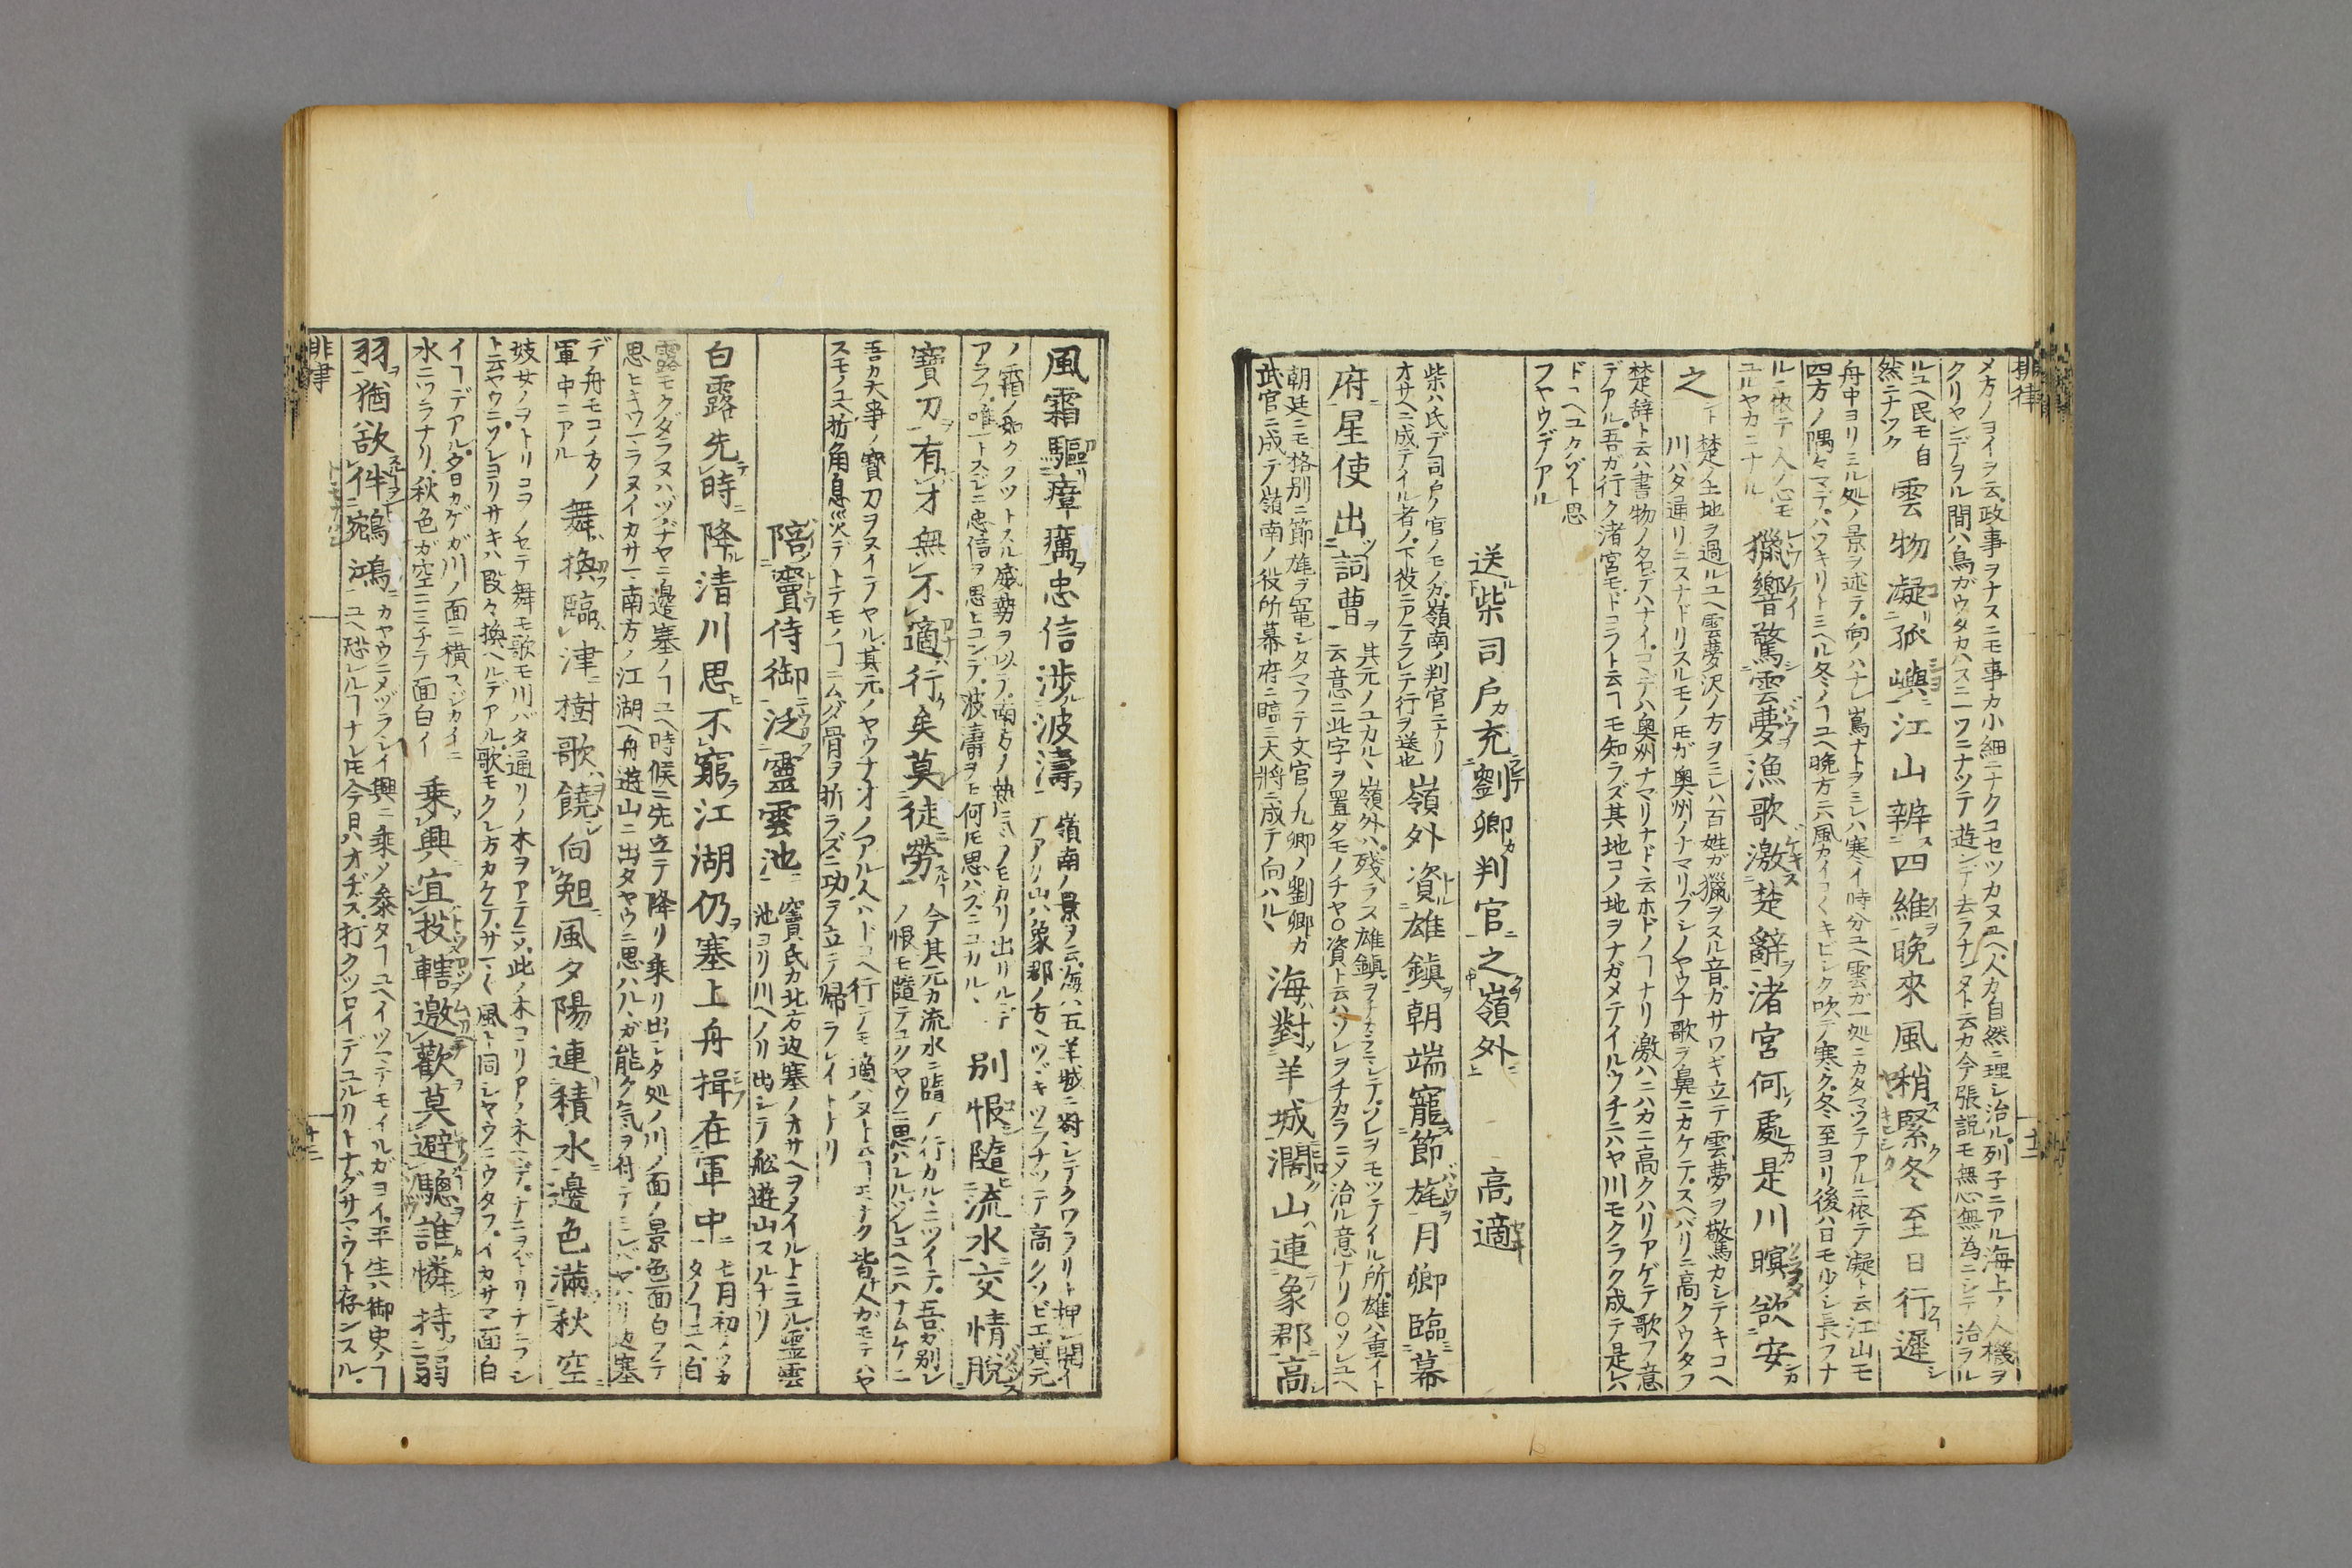 排律
メ方ノヨイヲ云政事ヲナスニモ事カ小細ニナクコセツカヌユヘ人カ自然ニ理シ治ル列子ニアル海上ノ人機ヲ
クリヤンデヲル間ハ鳥ガウタカハスニワニナツテ遊ンデ去ラナンダト云カ今張説モ無心無為ニシテ治ラル
ルユヘ民モ自
然ニナツク
雲物凝孤嶼江山辨四維晩來風稍緊冬至日行遲
舟中ヨリミル処ノ景ヲ述テ向ノハナレ嶌ナトヲミレハ寒イ時分ユヘ雲ガ一処ニカタマツテアルニ依テ凝ト云江山モ
四方ノ隅々マデハツキリトミヘル冬ノヿユヘ晩方ニ風カイコクキビシク吹テ寒ク冬至ヨリ後ハ日モ少シ長フナ
ルニ依テ人ノ心モ
ユルヤカニナル
獵響驚雲夢漁歌激楚辭渚宮何處是川暝欲安
之
楚ノ土地ヲ過ルユヘ雲夢沢ノ方ヲミレハ百姓ガ獵ヲスル音ガサワギ立テ雲夢ヲ驚カシテキコヘ
川バタ通リニスナドリスルモノ𪜈ガ奥州ノナマリブシノヤウナ歌ヲ鼻ニカケテスヘバリニ高クウタフ
楚辞ト云ハ書物ノ名デハナイコヽデハ奥州ナマリナドヽ云ホドノヿナリ激ハニハカニ高クハリアゲテ歌フ意
デアル吾ガ行ク渚宮モドコラト云ヿモ知ラズ其地コノ地ヲナガメテイルウチニハヤ川モクラク成テ是ハ
ドコヘユクゾト思
フヤウデアル
送柴司戶充劉卿判官之嶺外　高適
柴ハ氏デ司戶ノ官ノモノガ嶺南ノ判官ニナリ
オサヘニ成テイル者ノ下役ニアテラレテ行ヲ送也
嶺外資雄鎭朝端寵節旄月卿臨幕
府星使出詞曹
其元ノユカルヽ嶺外ハ残ラス雄鎭ヲチカラニシテソレヲモツテイル所雄ハ重イト
云意ニ此字ヲ置タモノチヤ〇資ト云ハソレヲチカラニメ治ル意ナリ〇ソレユヘ
朝廷ニモ格別ニ節旄ヲ寵シタマフテ文官ノ九卿ノ劉卿カ
武官ニ成テ嶺南ノ役所幕府ニ臨ミ大将ニ成テ向ハルヽ
海對羊城濶山連象郡高
風霜驅瘴癘忠信涉波濤
嶺南ノ景ヲ云海ハ五羊城ニ對シテクワラリト押開イ
テアリ山ハ象郡ノ方ヘツヾキツラナツテ高クソビエ其元
ノ霜ノ如クナツトスル威勢ヲ以テ南方ノ熱気ノモカリ出リルテ
アラフ唯一トスジニ忠信ヲ思ヒコンデ波濤ヲヒ何𪜈思ハズニユカルヽ
別恨隨流水交情脫
寶刀有才無不適行矣莫徒勞
今其元カ流水ニ臨ンテ行カルヽニツイテ吾ガ別レ
ノ恨モ隨テユクヤウニ思ハレルソレユヘニハナムケニ
吾カ大事ノ寶刀ヲヌイテヤル其元ノヤウナオノアル人ハドコヘ行テモ適ハヌト云ヿモナク皆人ガモテハヤ
スモノユヘ折角息災デトテモノヿニムダ骨ヲ折ラズニ功ヲ立テ帰ラレイトナリ
陪竇侍御泛靈雲池
竇氏カ北方边塞ノオサヘヲメイルトニユル霊雲
池ヨリ川ヘノリ出シテ舩遊山スルナリ
白露先時降清川思不窮江湖仍塞上舟揖在軍中
七月初ノツカ
タノヿユヘ白
露モクダラヌハヅナヤニ邊塞ノヿユヘ時候ニ先立テ降リ乗リ出シタ処ノ川ノ面ノ景色面白フテ
思ヒキワマラヌイカサマ南方ノ江湖ヘ舟遊山ニ出タヤウニ思ハルヽガ能ク気ヲ付テミレバヤハリ边塞
デ舟モコノ方ノ
軍中ニアル
舞換臨津樹歌饒向𩗗風夕陽連積水邊色滿秋空
妓女ノヲトリコヲノセテ舞モ歌モ川バタ通リノ木ヲアテニメ此ノ木コリアノ木マデデナニヲドリナニフシ
ト云ヤウニソレヨリサキハ段々換ヘルデアル歌モクレ方カケテサマく風ト同シヤウニウタフイカサマ面白
イヿデアル夕日カゲガ川ノ面ニ横スジカイニ
水ニツラナリ秋色ガ空ニミチテ面白イ
乗興宜投轄邀歡莫避驄誰憐持弱
羽猶欲伴鵷鴻
カヤウニメヅラシイ興ニ乗ソ參タヿユヘイツマテモイルガヨイ平生ハ御史ノヿ
ユヘ恐レルヿナレ𪜈今日ハオヂズ打クツロイデユルリトナグサマウト存ンスル
排律
十二